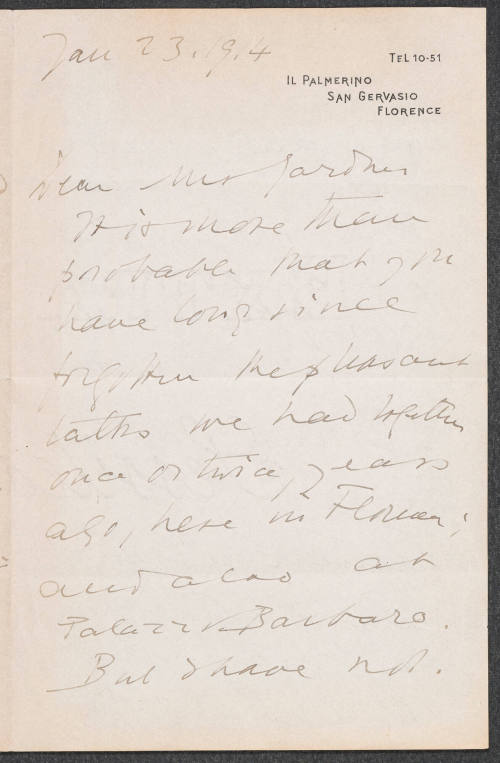 Jan 23. 19.4
TEL 10-51
IL PALMERINO
SAN GERVASIO
FLORENCE
Dear Mrs Gardner
It is more than
probable that you
have long since
forgotten the pleasant
talks we had together
once or twice, years
ago, here in Florence;
and also at
Palazzo Barbaro.
But I have not.